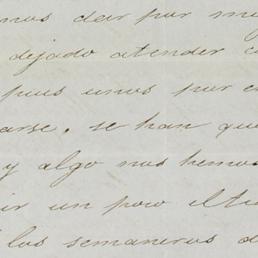 mos dar por mu
dejado atender c
pues unos por e
arse, se han que
y algo nos hemo
ir un poco el ti
los semaneros d